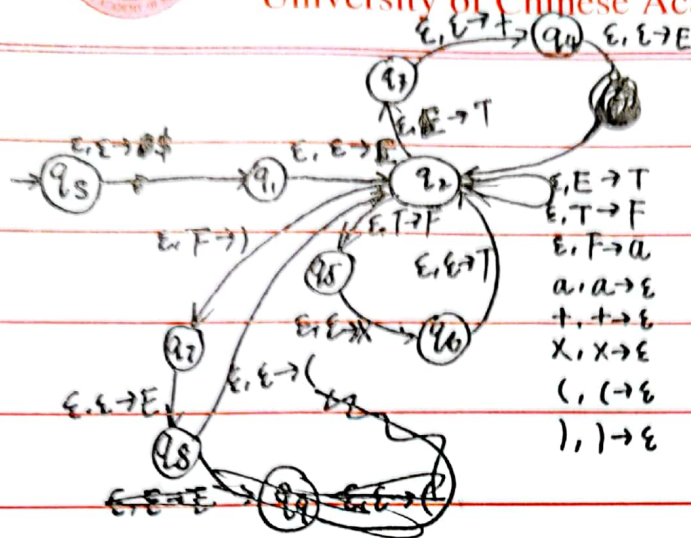 University of Chinese Ac
ε, ε→+
q4
ε, ε→E
q3
ε, E→T
ε, ε→$
ε, ε→E
qs
q1
q2
ε, E→T
ε, T→F
ε, F→a
a, a→ε
+, +→ε
×, ×→ε
(, (→ε
), )→ε
ε, F→)
ε, T→F
q5
ε, ε→T
ε, ε→×
q6
q7
ε, ε→(
ε, ε→E
q8
q9